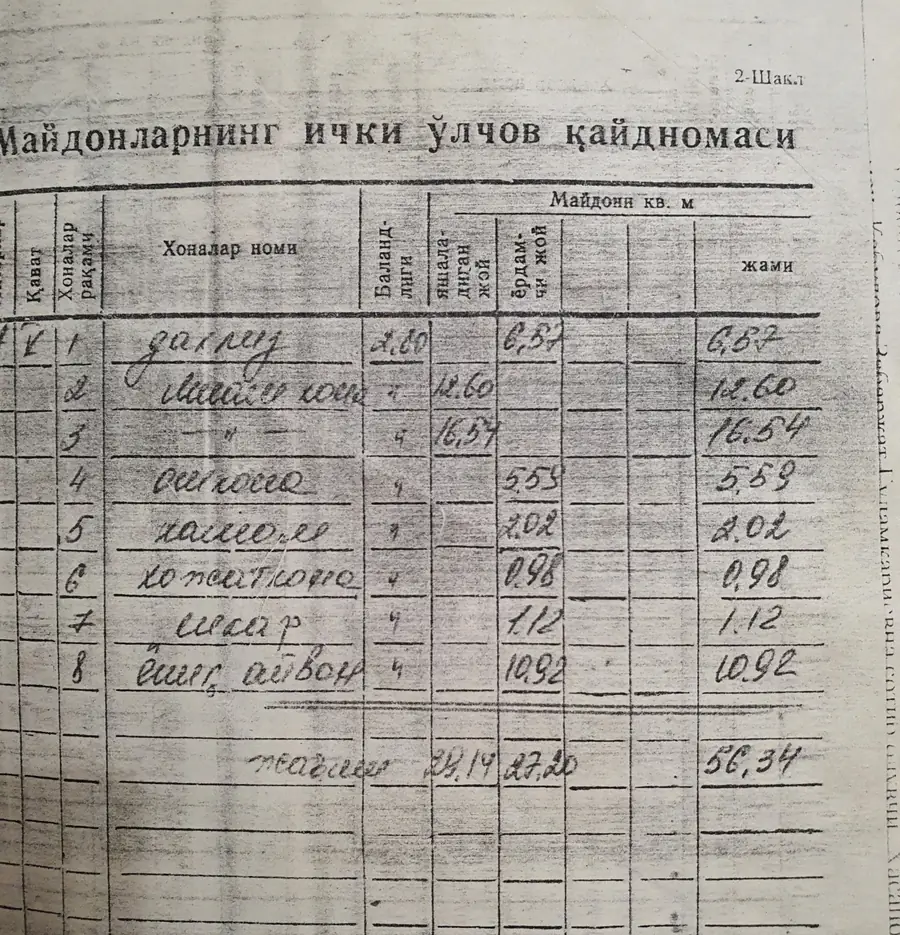 2-Шакл
Майдонларнинг ички ўлчов қайдномаси
Қават
Хоналар рақами
Хоналар номи
Баландлиги
Майдони кв. м
яшаладиган жой
ёрдамчи жой
жами
V 1 дахлиз 2.60 6,57 6,57
2 хона " 12.60 12.60
3 — " — " 16,54 16.54
4 ошхона " 5,59 5,59
5 хаммом " 2.02 2.02
6 хожатхона " 0,98 0,98
7 шкаф " 1.12 1.12
8 ёпиқ айвон " 10.92 10.92
жаъми 29,14 27,20 56,34